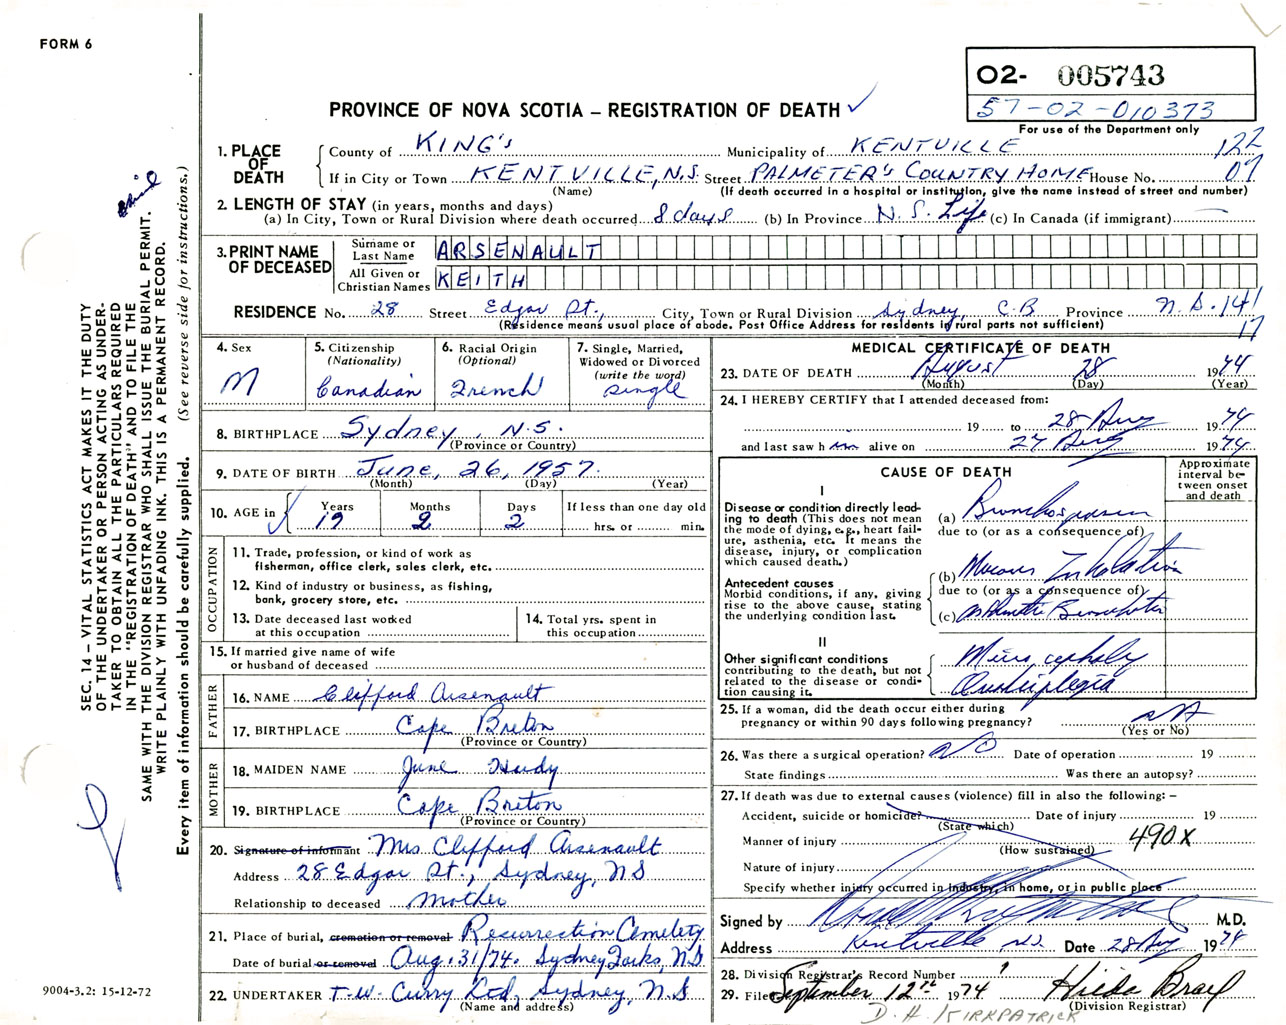 FORM 6
O2- 005743
57-02-010373
For use of the Department only
PROVINCE OF NOVA SCOTIA – REGISTRATION OF DEATH ✓
1. PLACE OF DEATH
County of KING'S Municipality of KENTVILLE 122
If in City or Town KENTVILLE, N.S. Street PALMETER'S COUNTRY HOME House No. 07
(Name) (If death occurred in a hospital or institution, give the name instead of street and number)
2. LENGTH OF STAY (in years, months and days)
(a) In City, Town or Rural Division where death occurred 8 days (b) In Province N.S. Life (c) In Canada (if immigrant) —
3. PRINT NAME OF DECEASED
Surname or Last Name ARSENAULT
All Given or Christian Names KEITH
RESIDENCE No. 28 Street Edgar St., City, Town or Rural Division Sydney, C.B Province N.S. 141
(Residence means usual place of abode. Post Office Address for residents in rural parts not sufficient) 17
4. Sex M
5. Citizenship (Nationality) Canadian
6. Racial Origin (Optional) French
7. Single, Married, Widowed or Divorced (write the word) single
8. BIRTHPLACE Sydney, N.S.
(Province or Country)
9. DATE OF BIRTH June, 26, 1957.
(Month) (Day) (Year)
10. AGE in Years 17 Months 2 Days 2 If less than one day old hrs. or min.
OCCUPATION
11. Trade, profession, or kind of work as fisherman, office clerk, sales clerk, etc.
12. Kind of industry or business, as fishing, bank, grocery store, etc.
13. Date deceased last worked at this occupation
14. Total yrs. spent in this occupation
15. If married give name of wife or husband of deceased
FATHER
16. NAME Clifford Arsenault
17. BIRTHPLACE Cape Breton
(Province or Country)
MOTHER
18. MAIDEN NAME June Hardy
19. BIRTHPLACE Cape Breton
(Province or Country)
20. Signature of informant Mrs Clifford Arsenault
Address 28 Edgar St., Sydney, N S
Relationship to deceased Mother
21. Place of burial, cremation or removal Resurrection Cemetery
Date of burial or removal Aug. 31/74. Sydney Forks, N.S
22. UNDERTAKER T.W. Curry Ltd, Sydney, N.S
(Name and address)
MEDICAL CERTIFICATE OF DEATH
23. DATE OF DEATH August 28 1974
(Month) (Day) (Year)
24. I HEREBY CERTIFY that I attended deceased from:
19 to 28 Aug 1974
and last saw h im alive on 27 Aug 1974
CAUSE OF DEATH
Approximate interval between onset and death
I
Disease or condition directly leading to death (This does not mean the mode of dying, e.g., heart failure, asthenia, etc. It means the disease, injury, or complication which caused death.)
(a) Bronchospasm
due to (or as a consequence of)
Antecedent causes
Morbid conditions, if any, giving rise to the above cause, stating the underlying condition last.
(b) Mucous Inhalation
due to (or as a consequence of)
(c) Asthmatic Bronchitis
II
Other significant conditions contributing to the death, but not related to the disease or condition causing it.
Microcephaly
Quadriplegia
25. If a woman, did the death occur either during pregnancy or within 90 days following pregnancy? NA
(Yes or No)
26. Was there a surgical operation? NO Date of operation 19
State findings Was there an autopsy?
27. If death was due to external causes (violence) fill in also the following: –
Accident, suicide or homicide? Date of injury 19
(State which)
Manner of injury 490X
(How sustained)
Nature of injury
Specify whether injury occurred in industry, in home, or in public place
Signed by M.D.
Address Kentville N.S. Date 28 Aug 1974
28. Division Registrar's Record Number
29. Filed September 12th 1974 Hilda Bray
(Division Registrar)
D. H. KIRKPATRICK
SEC. 14 – VITAL STATISTICS ACT MAKES IT THE DUTY
OF THE UNDERTAKER OR PERSON ACTING AS UNDER-
TAKER TO OBTAIN ALL THE PARTICULARS REQUIRED
IN THE "REGISTRATION OF DEATH" AND TO FILE THE
SAME WITH THE DIVISION REGISTRAR WHO SHALL ISSUE THE BURIAL PERMIT.
WRITE PLAINLY WITH UNFADING INK. THIS IS A PERMANENT RECORD.
Every item of information should be carefully supplied. (See reverse side for instructions.)
9004-3.2: 15-12-72